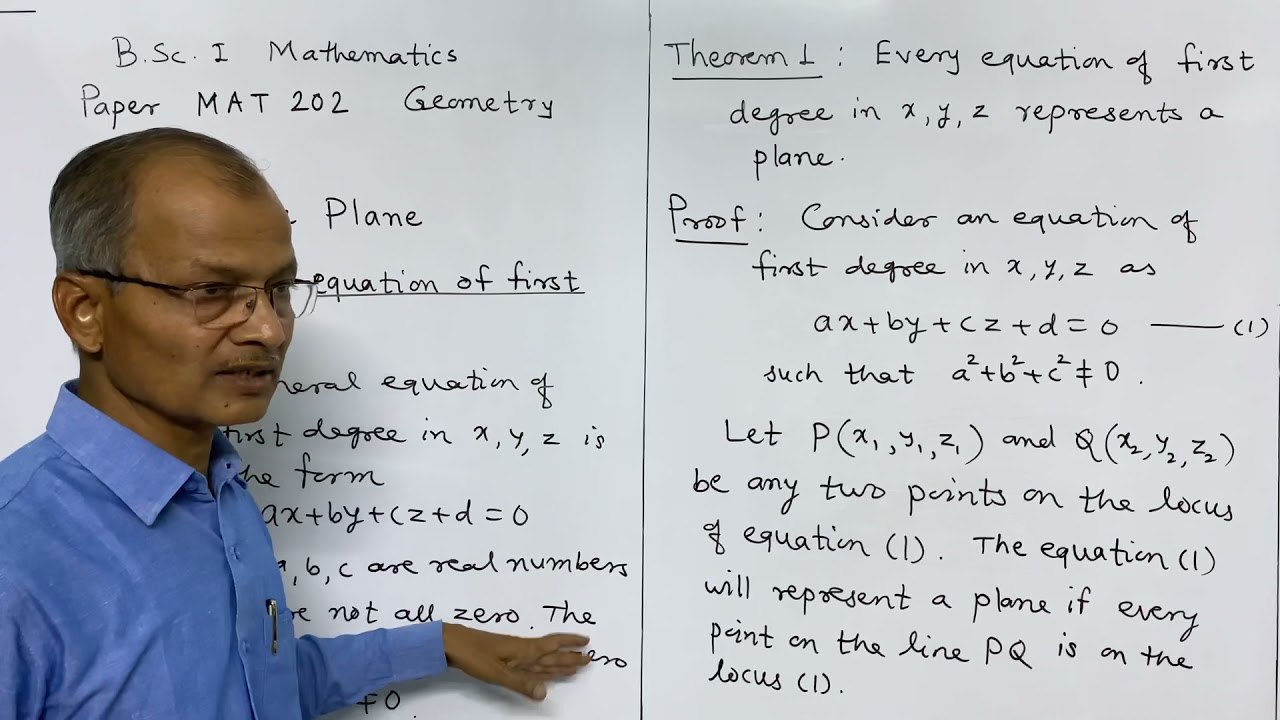 B.Sc. I Mathematics
Paper MAT 202 Geometry
Plane
equation of first
neral equation of
first degree in x, y, z is
the form
ax+by+cz+d=0
a, b, c are real numbers
re not all zero. The
zero
≠0.
Theorem 1 : Every equation of first
degree in x, y, z represents a
plane.
Proof : Consider an equation of
first degree in x, y, z as
ax+by+cz+d=0 —— (1)
such that a²+b²+c² ≠ 0.
Let P(x₁, y₁, z₁) and Q(x₂, y₂, z₂)
be any two points on the locus
of equation (1). The equation (1)
will represent a plane if every
point on the line PQ is on the
locus (1).